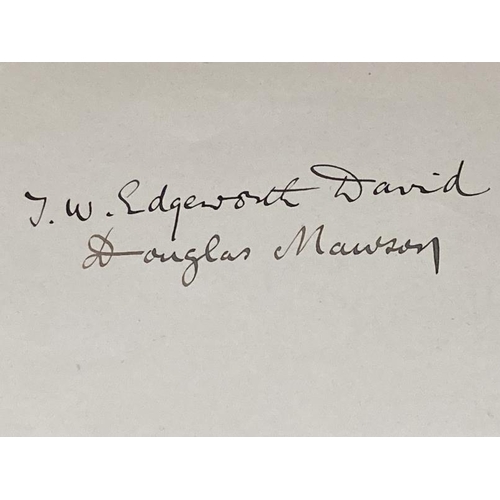 T. W. Edgeworth David
Douglas Mawson